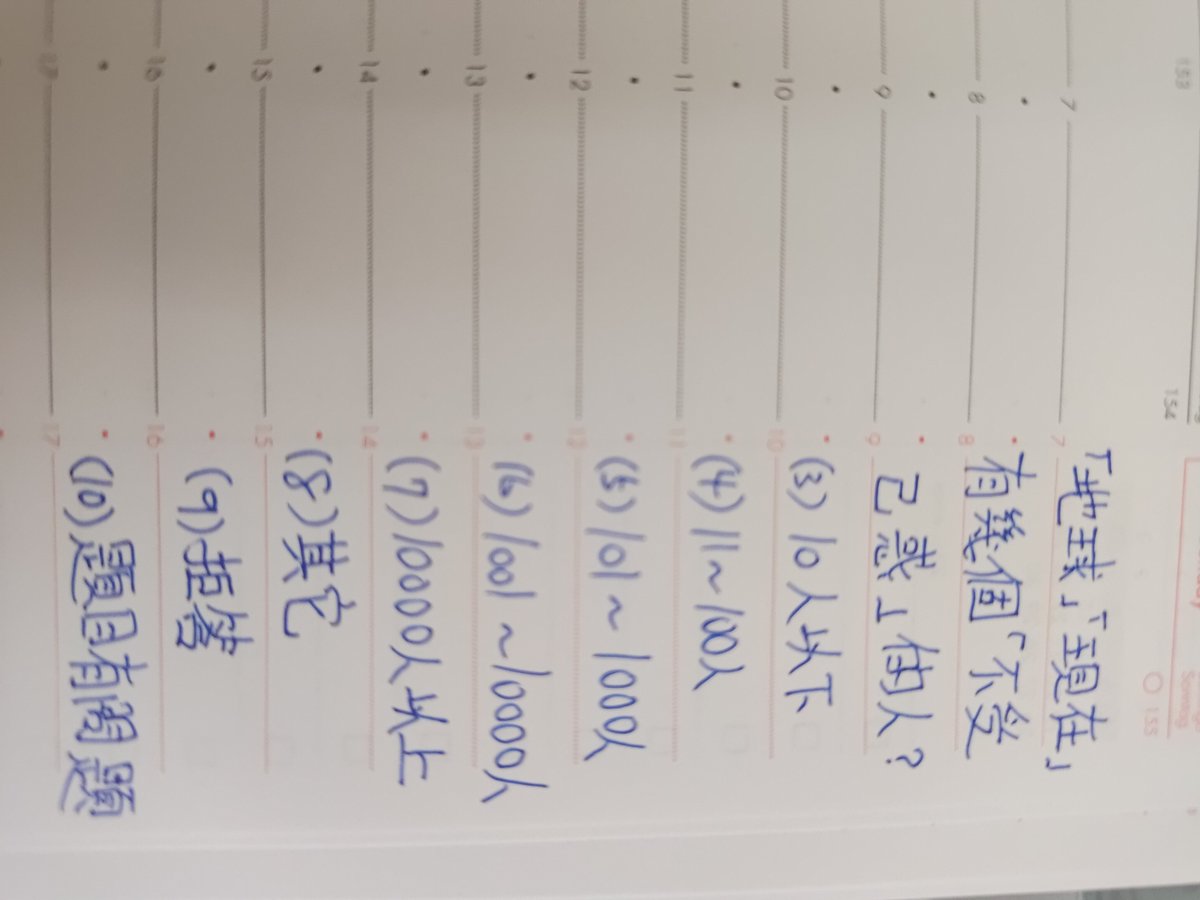 153
154
7 7
8 8
9 9
10 10
11 11
12 12
13 13
14 14
15 15
16 16
17 17
「地球」「現在」
有幾個「不受
己惑」的人?
(3) 10人以下
(4) 11~100人
(5) 101~1000人
(6) 1001~10000人
(7) 10000人以上
(8) 其它
(9) 拒答
(10) 題目有問題